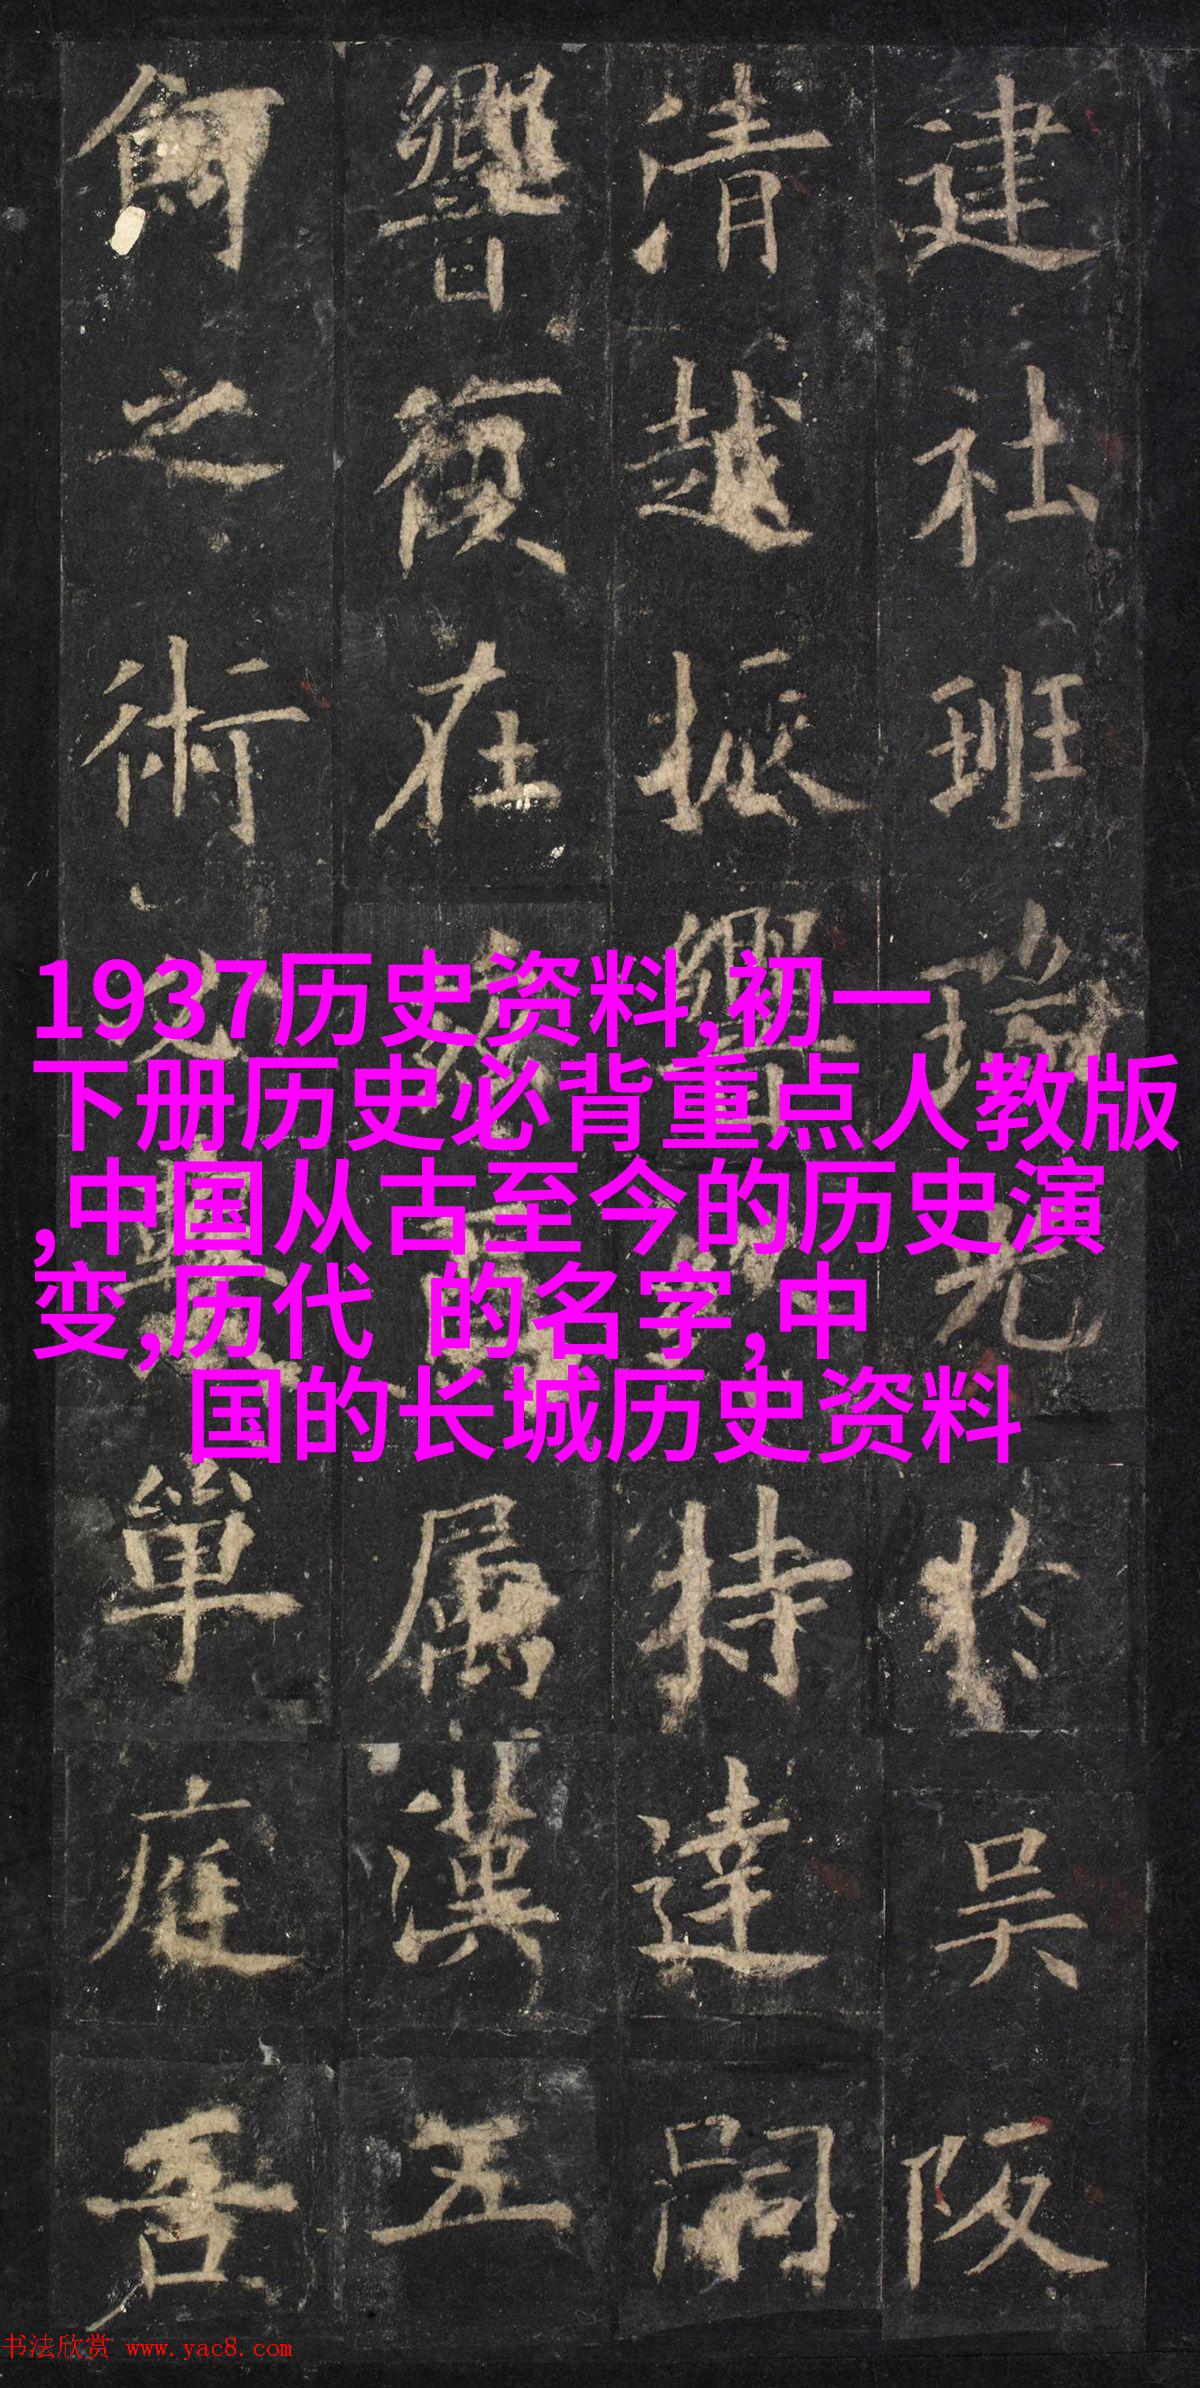 建社班瑞光於吳阪
清越振響特達嗣
響復在屬漢
之術單庭
1937历史资料,初一
下册历史必背重点人教版
,中国从古至今的历史演
变,历代 的名字,中
国的长城历史资料
书法欣赏 www.yac8.com